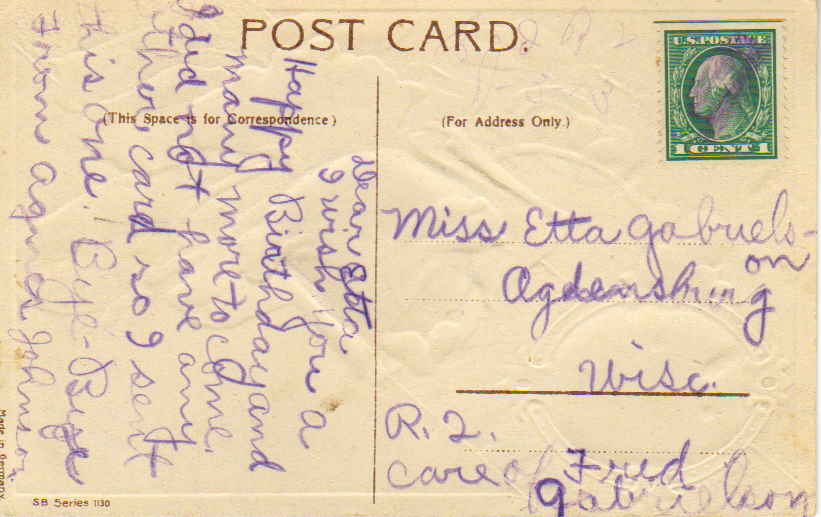 POST CARD.
(This Space is for Correspondence)
(For Address Only.)
U.S. POSTAGE
1 CENT 1
Dear Etta
I wish you a
Happy Birthday and
many more to come.
I did not have any
other card so I sent
this one. Bye-Bye
From Agnes Johnson
Miss Etta Gabriels-
on
Ogdensburg
Wisc.
R. 2.
Care of Fred
Gabrielson
SB Series 1130
Made in Germany